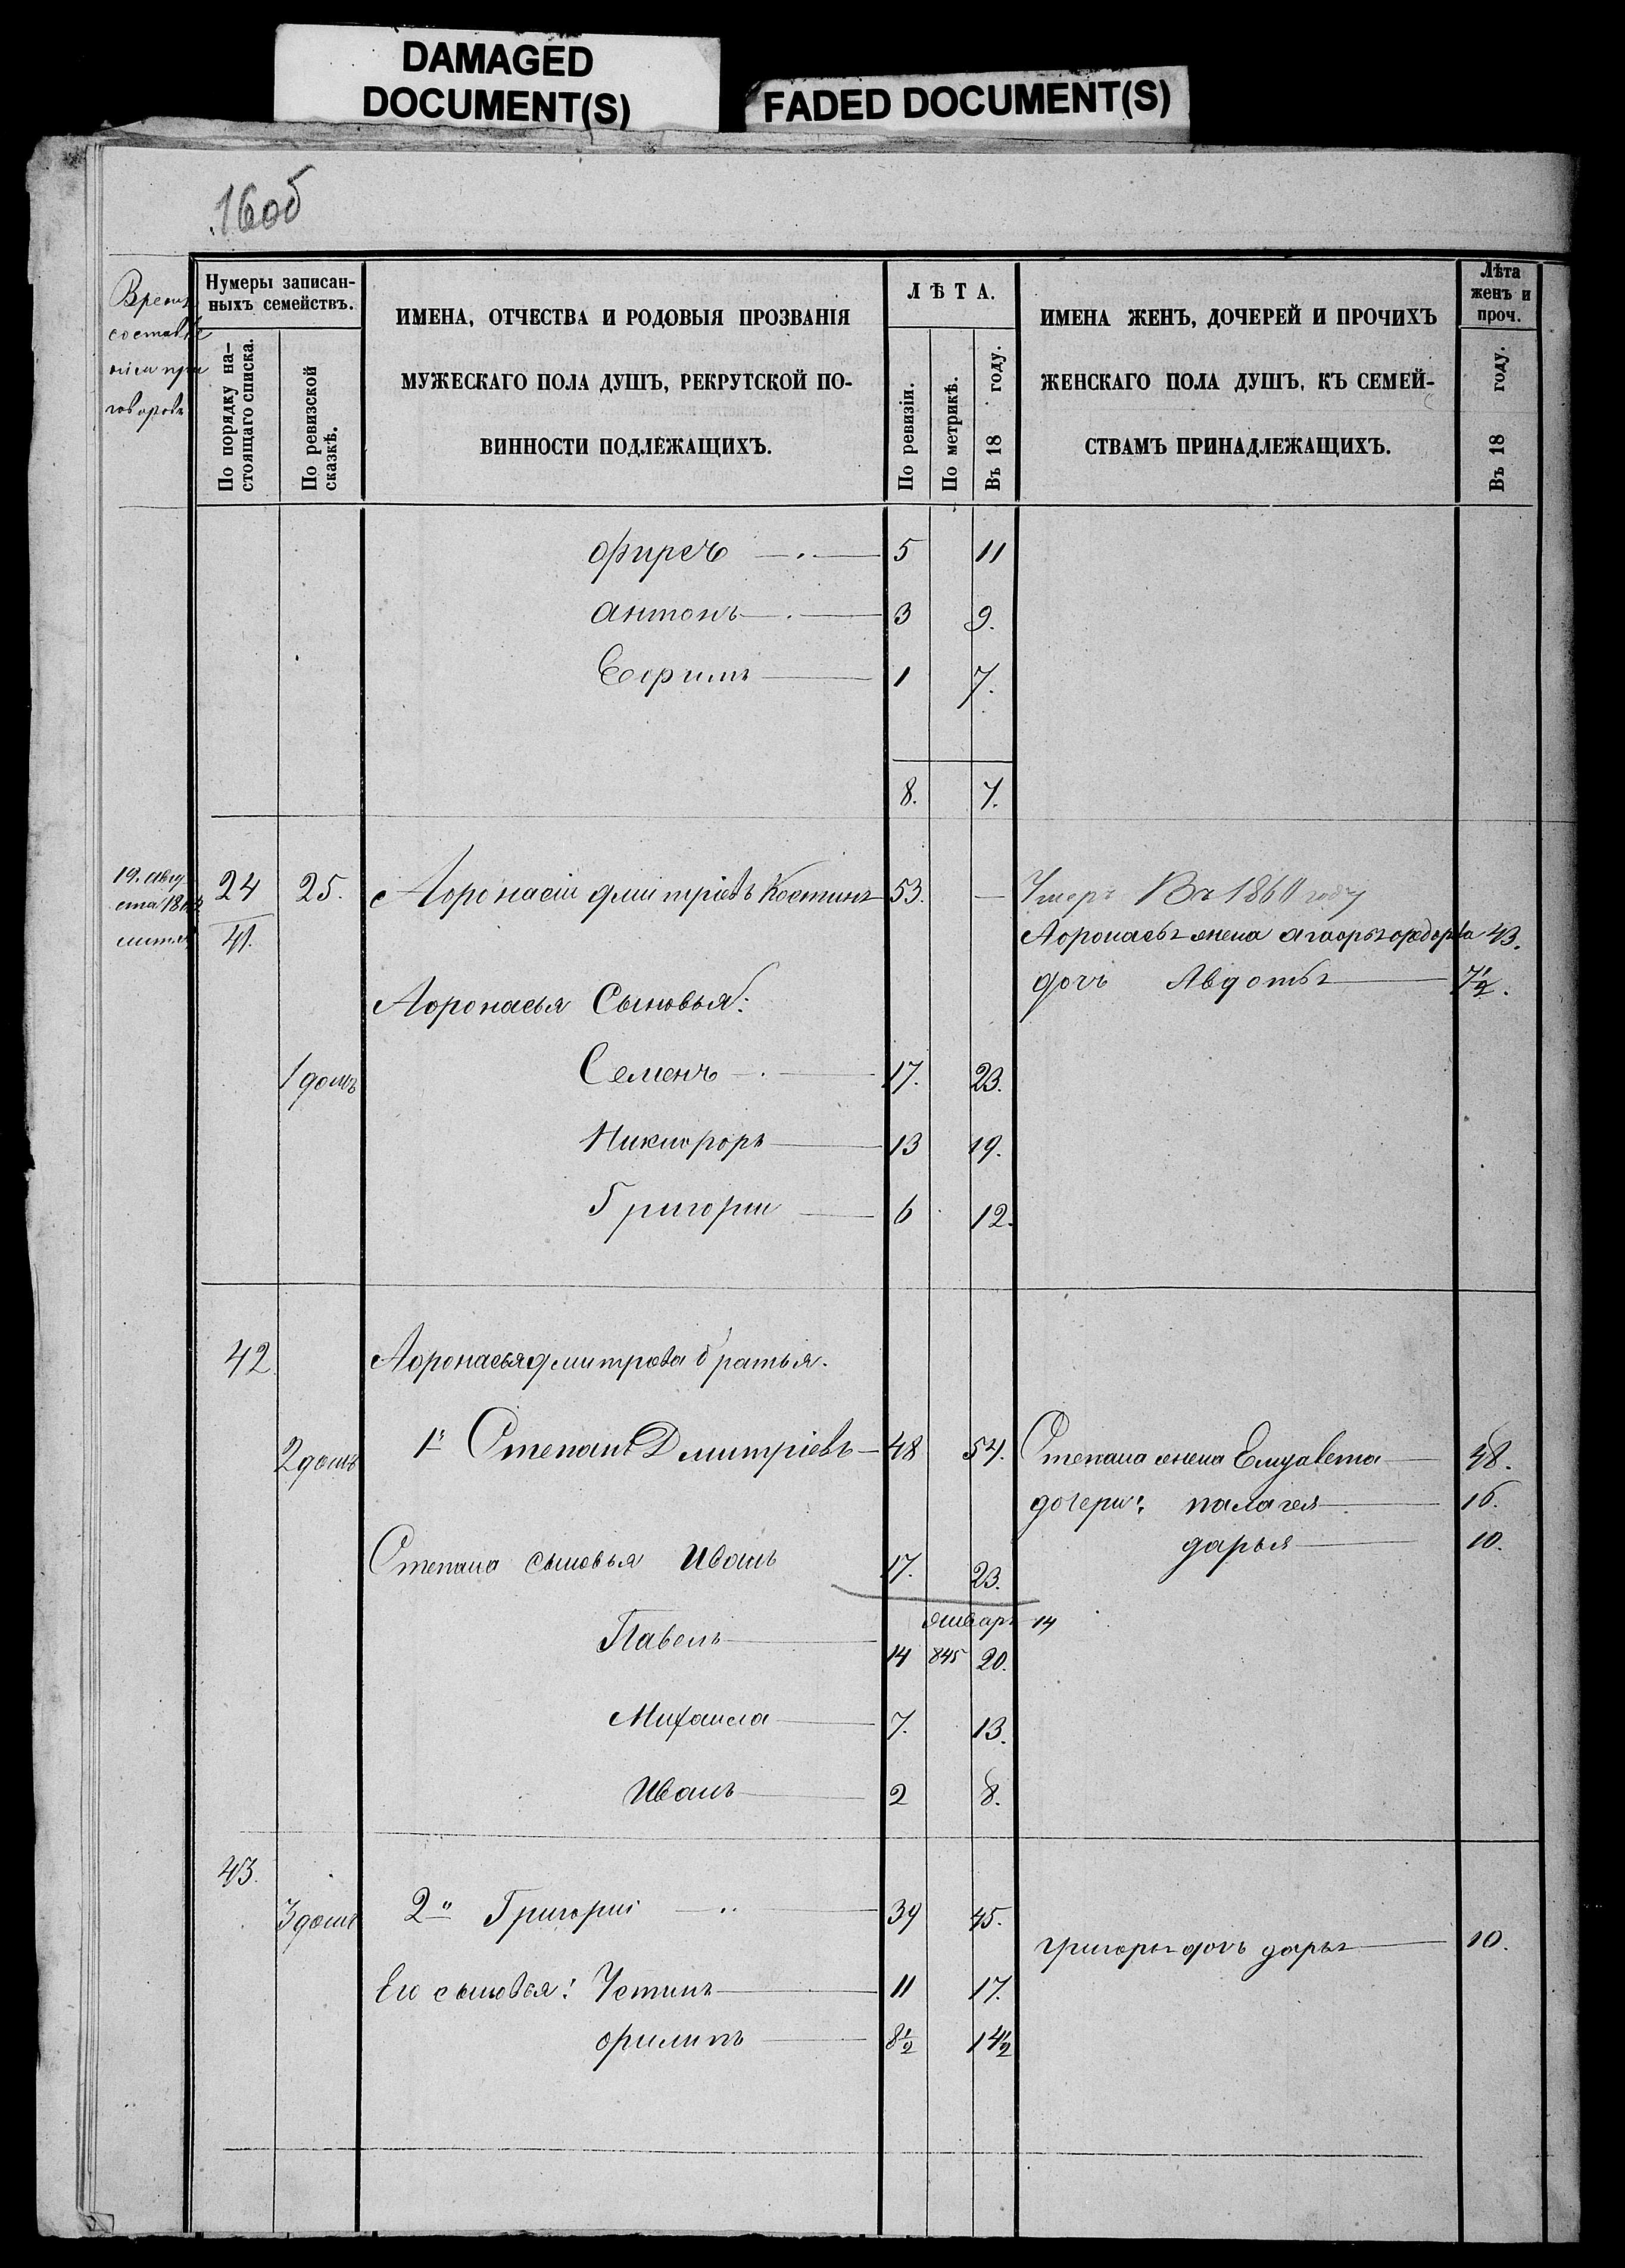 DAMAGED
DOCUMENT(S)
FADED DOCUMENT(S)
16об
Время
составле
нія при
говора
Нумеры записан-
ныхъ семействъ.
По порядку на-
стоящаго списка.
По ревизской
сказкѣ.
ИМЕНА, ОТЧЕСТВА И РОДОВЫЯ ПРОЗВАНІЯ
МУЖЕСКАГО ПОЛА ДУШЪ, РЕКРУТСКОЙ ПО-
ВИННОСТИ ПОДЛЕЖАЩИХЪ.
ЛѢТА.
По ревизіи.
По метрикѣ.
Въ 18 году.
ИМЕНА ЖЕНЪ, ДОЧЕРЕЙ И ПРОЧИХЪ
ЖЕНСКАГО ПОЛА ДУШЪ, КЪ СЕМЕЙ-
СТВАМЪ ПРИНАДЛЕЖАЩИХЪ.
Лѣта
женъ и
проч.
Въ 18 году.
5 11
антонъ 3 9.
Ефимъ 1 7.
8. 7.
19. Авгу
ста
24 25. Афонасій дмитріевъ Костинъ 53. — Умеръ Въ 1860 году
41. Афонасья жена 43.
дочь Авдотья 7½.
Афонасья Сыновья:
1 домъ Семенъ 17. 23.
Никифоръ 13 19.
Григории 6 12.
42 Афонасья дмитрева братья.
2 домъ 1й Степанъ Дмитріевъ 48 54. Степана жена Елизавета 48.
дочери: палагея 16.
дарья 10.
Степана сыновья Иванъ 17. 23.
январь 14
Павелъ 14 845 20.
Михаила 7. 13.
Иванъ 2 8.
43.
3 домъ 2й Григорий 39 45.
григорья дочь дарья 10.
Его сыновья: Устинъ 11 17.
филипъ 8½ 14½